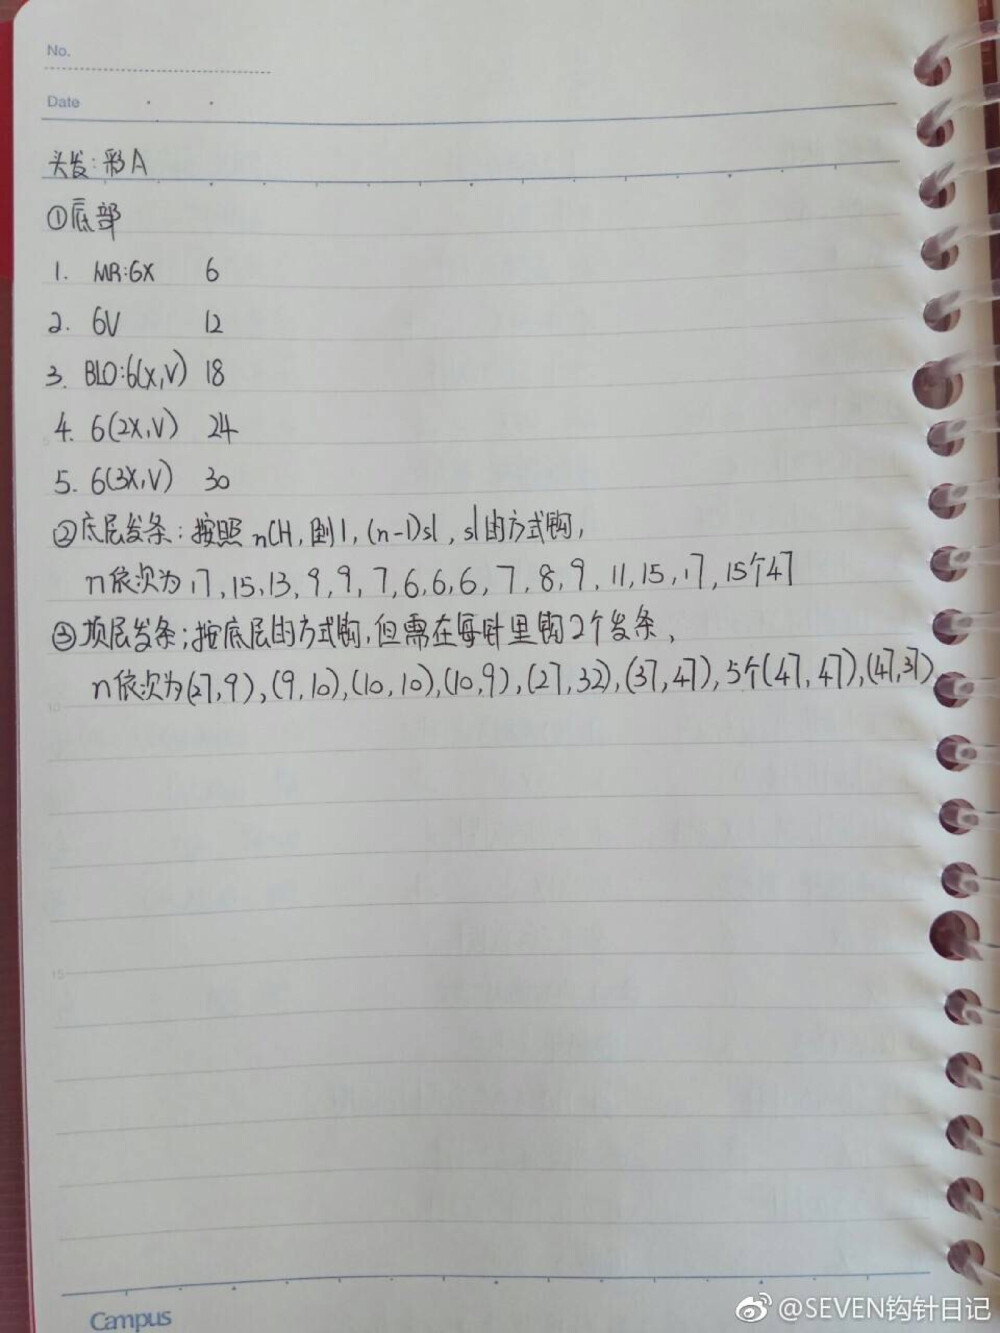 No.
Date
头发:彩A
①底部
1. MR:6X 6
2. 6V 12
3. BLO:6(X,V) 18
4. 6(2X,V) 24
5. 6(3X,V) 30
②底层发条:按照nCH,倒1,(n-1)sl,sl的方式钩,
n依次为17,15,13,9,9,7,6,6,6,7,8,9,11,15,17,15个47
③顶层发条:按底层的方式钩,但需在每针里钩2个发条,
n依次为(27,9),(9,10),(10,10),(10,9),(27,32),(37,47),5个(47,47),(47,37)
10
15
Campus
@SEVEN钩针日记